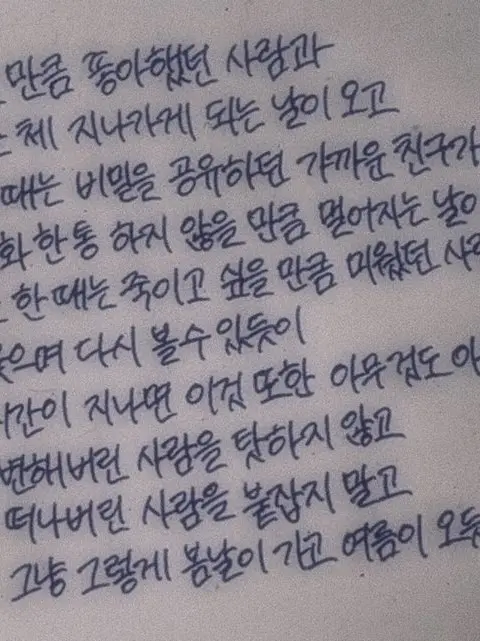 만큼 좋아했던 사람과
체 지나가게 되는 날이 오고
때는 비밀을 공유하던 가까운 친구가
화 한 통 하지 않을 만큼 멀어지는 날이
한 때는 죽이고 싶을 만큼 미웠던 사
웃으며 다시 볼 수 있듯이
시간이 지나면 이것 또한 아무것도 아
변해버린 사람을 탓하지 않고
떠나버린 사람을 붙잡지 말고
그냥 그렇게 봄날이 가고 여름이 오듯